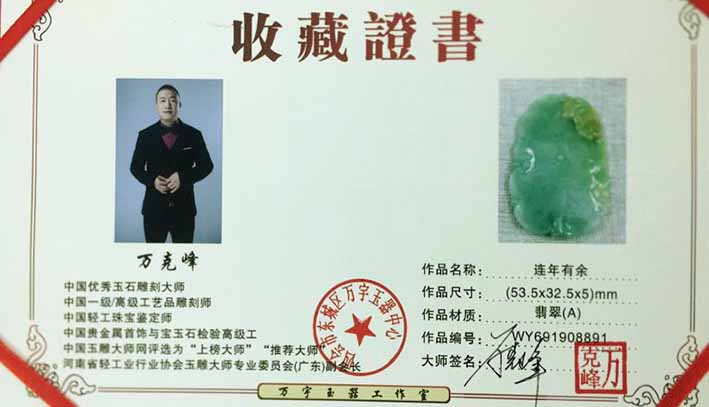 收藏證書
万克峰
中国优秀玉石雕刻大师
中国一级/高级工艺品雕刻师
中国轻工珠宝鉴定师
中国贵金属首饰与宝玉石检验高级工
中国玉雕大师网评选为“上榜大师”“推荐大师”
河南省轻工业行业协会玉雕大师专业委员会(广东)副会长
四会市东城区万宇玉器中心
作品名称: 连年有余
作品尺寸: (53.5x32.5x5)mm
作品材质: 翡翠(A)
作品编号: WY691908891
大师签名:
万克峰
万宇玉器工作室